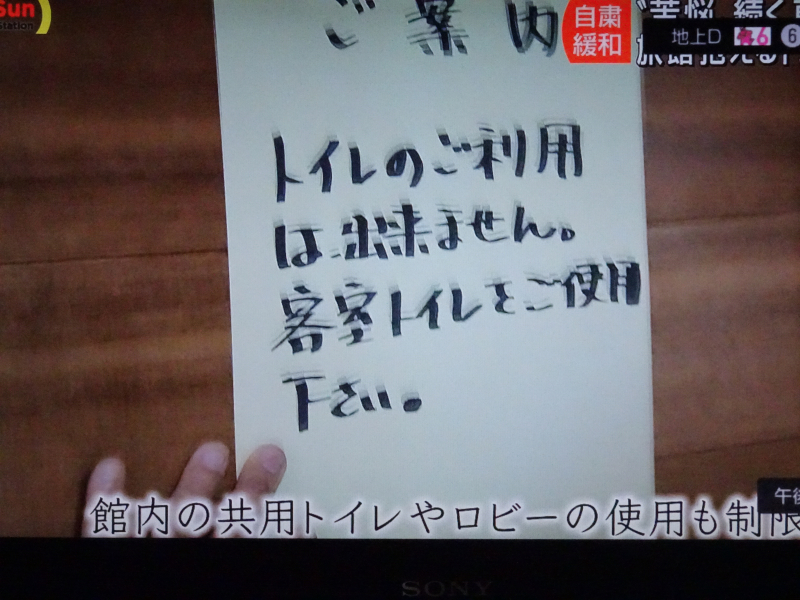 Sun
Station
ご案内
自粛
緩和
苦悩 続く
地上D
6
6
トイレのご利用
は出来ません。
客室トイレをご使用
下さい。
午後
館内の共用トイレやロビーの使用も制限
SONY